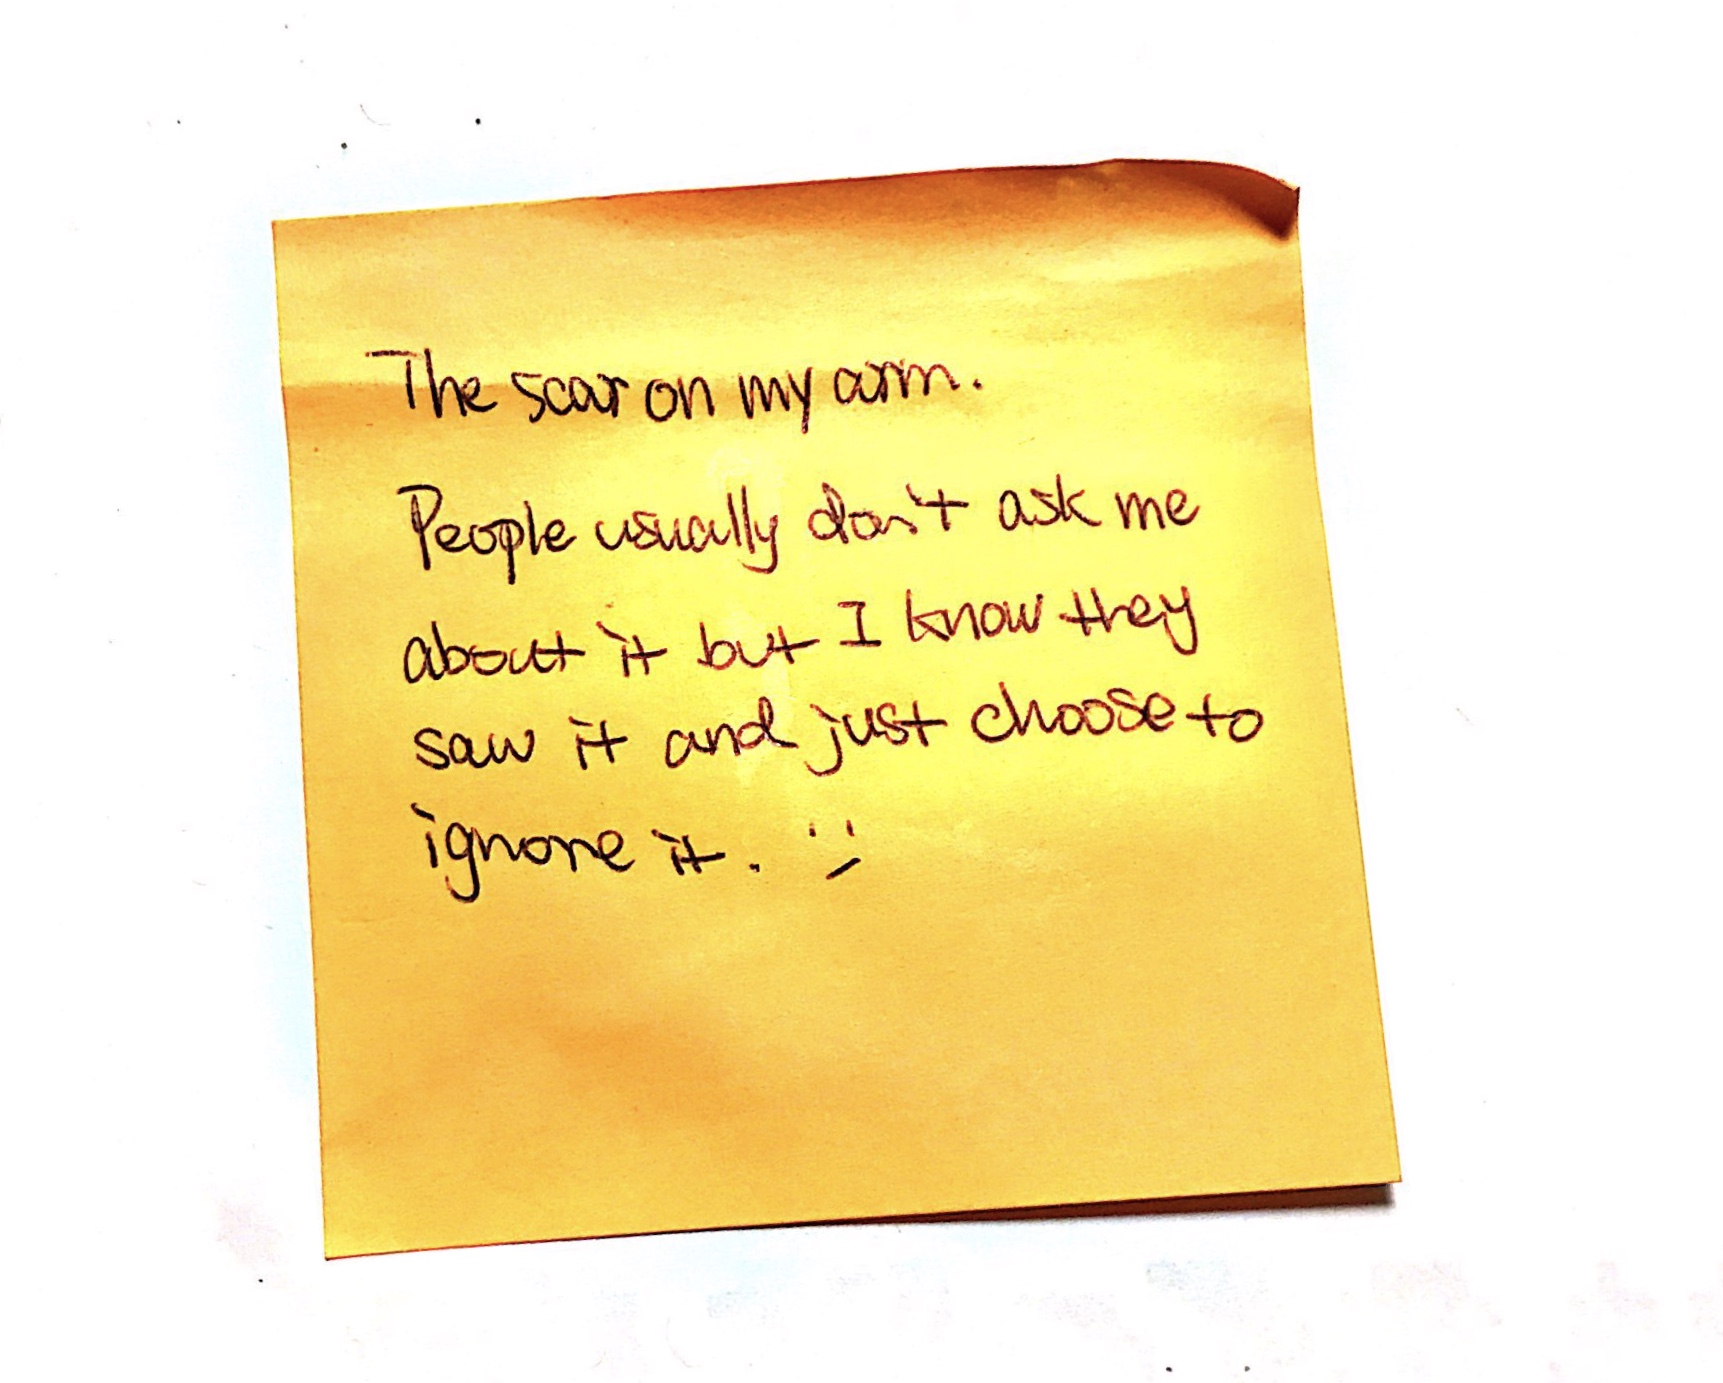 The scar on my arm.
People usually don't ask me
about it but I know they
saw it and just choose to
ignore it. :)